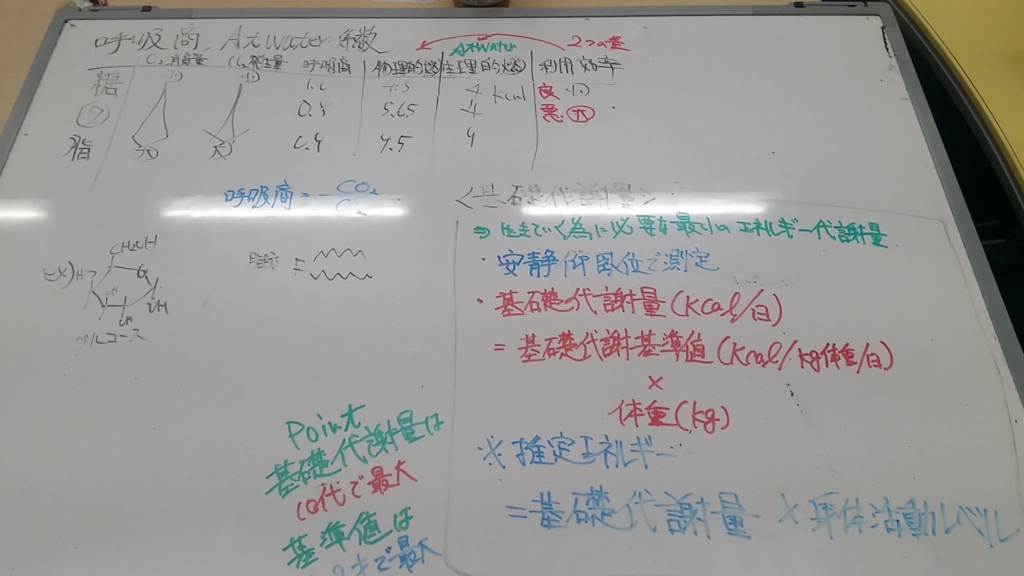 呼吸商, Atwater係数
Atwater 2つの差
O₂消費量 CO₂発生量 呼吸商 物理的燃 生理的燃 利用効率
糖 小 小 4 kcal 良 小
タ 0.8 5.65 4 悪 大
脂 大 大 9
呼吸商 = CO₂ / O₂
<基礎代謝量>
⇒ 生きていく為に必要な最小のエネルギー代謝量
・安静仰臥位で測定
・基礎代謝量(Kcal/日)
= 基礎代謝基準値(Kcal/kg体重/日)
×
体重(kg)
※推定エネルギー
= 基礎代謝量 × 身体活動レベル
ex)
CH₂OH
H
O
OH
OH
グルコース
脂肪
Point
基礎代謝量は
10代で最大
基準値は
で最大